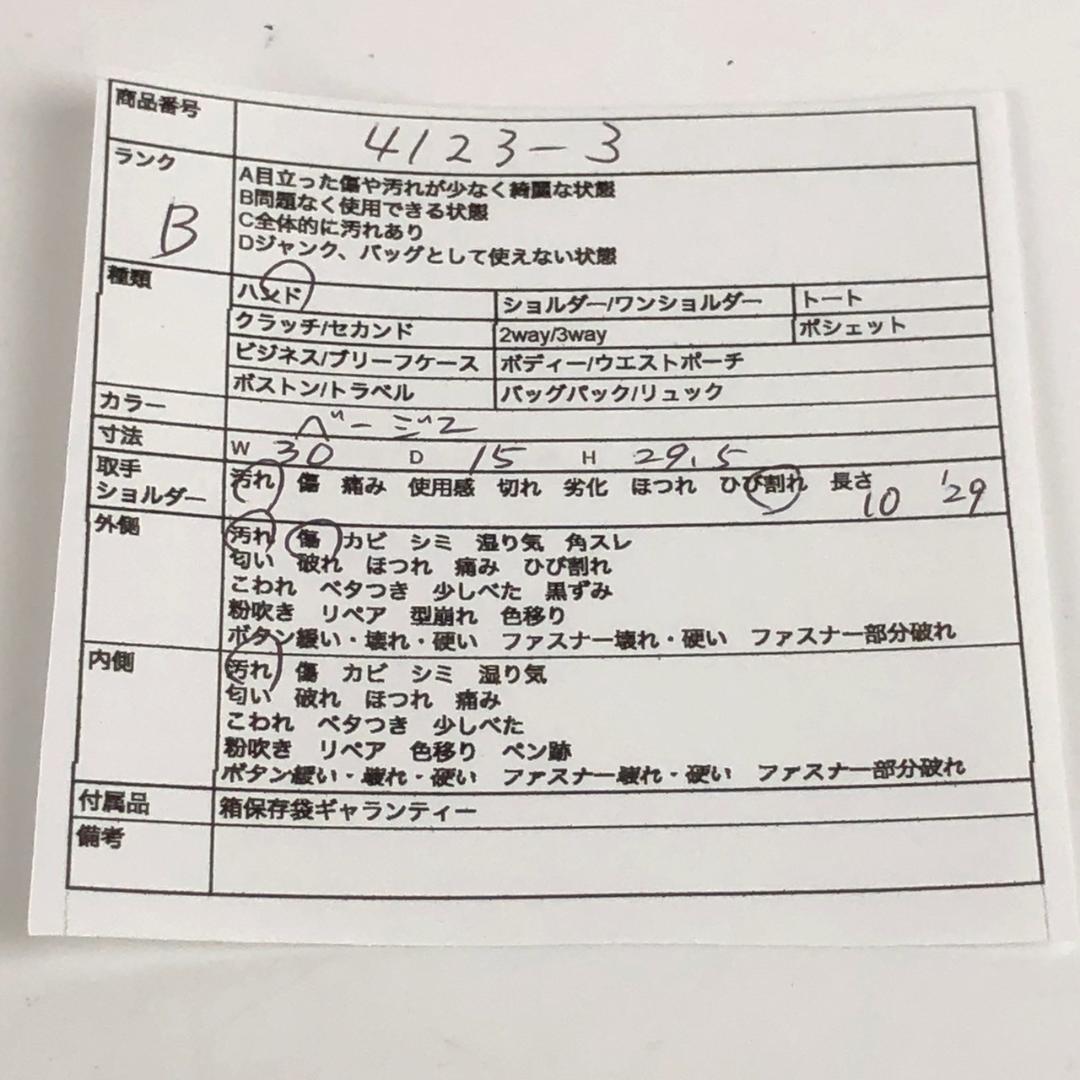 商品番号 4123-3
ランク B
A目立った傷や汚れが少なく綺麗な状態
B問題なく使用できる状態
C全体的に汚れあり
Dジャンク、バッグとして使えない状態
種類 ハンド ショルダー/ワンショルダー トート
クラッチ/セカンド 2way/3way ポシェット
ビジネス/ブリーフケース ボディー/ウエストポーチ
ボストン/トラベル バッグパック/リュック
カラー ベージュ
寸法 W 30 D 15 H 29.5
取手 汚れ 傷 痛み 使用感 切れ 劣化 ほつれ ひび割れ 長さ 10 29
ショルダー
外側 汚れ 傷 カビ シミ 湿り気 角スレ
匂い 破れ ほつれ 痛み ひび割れ
こわれ ベタつき 少しべた 黒ずみ
粉吹き リペア 型崩れ 色移り
ボタン緩い・壊れ・硬い ファスナー壊れ・硬い ファスナー部分破れ
内側 汚れ 傷 カビ シミ 湿り気
匂い 破れ ほつれ 痛み
こわれ ベタつき 少しべた
粉吹き リペア 色移り ペン跡
ボタン緩い・壊れ・硬い ファスナー壊れ・硬い ファスナー部分破れ
付属品 箱保存袋ギャランティー
備考